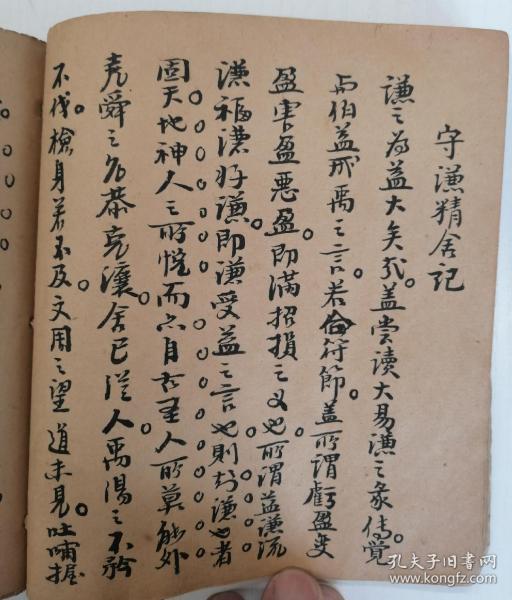 字謙精舍記
謙之為益大矣哉。蓋嘗讀大易謙之彖傳。覺
与伯益戒禹之言。若合符節。蓋所謂虧盈變
盈害盈惡盈。即滿招損之义也。所謂益謙流
謙福謙好謙。即謙受益之言也。則謙也者
固天地神人之所悅。而亦自古聖人所莫能外
堯舜之允恭克讓。舍己從人。禹湯之不矜
不伐。檢身若不及。文周之望道未見。吐哺握
孔夫子旧书网
kongfz.com